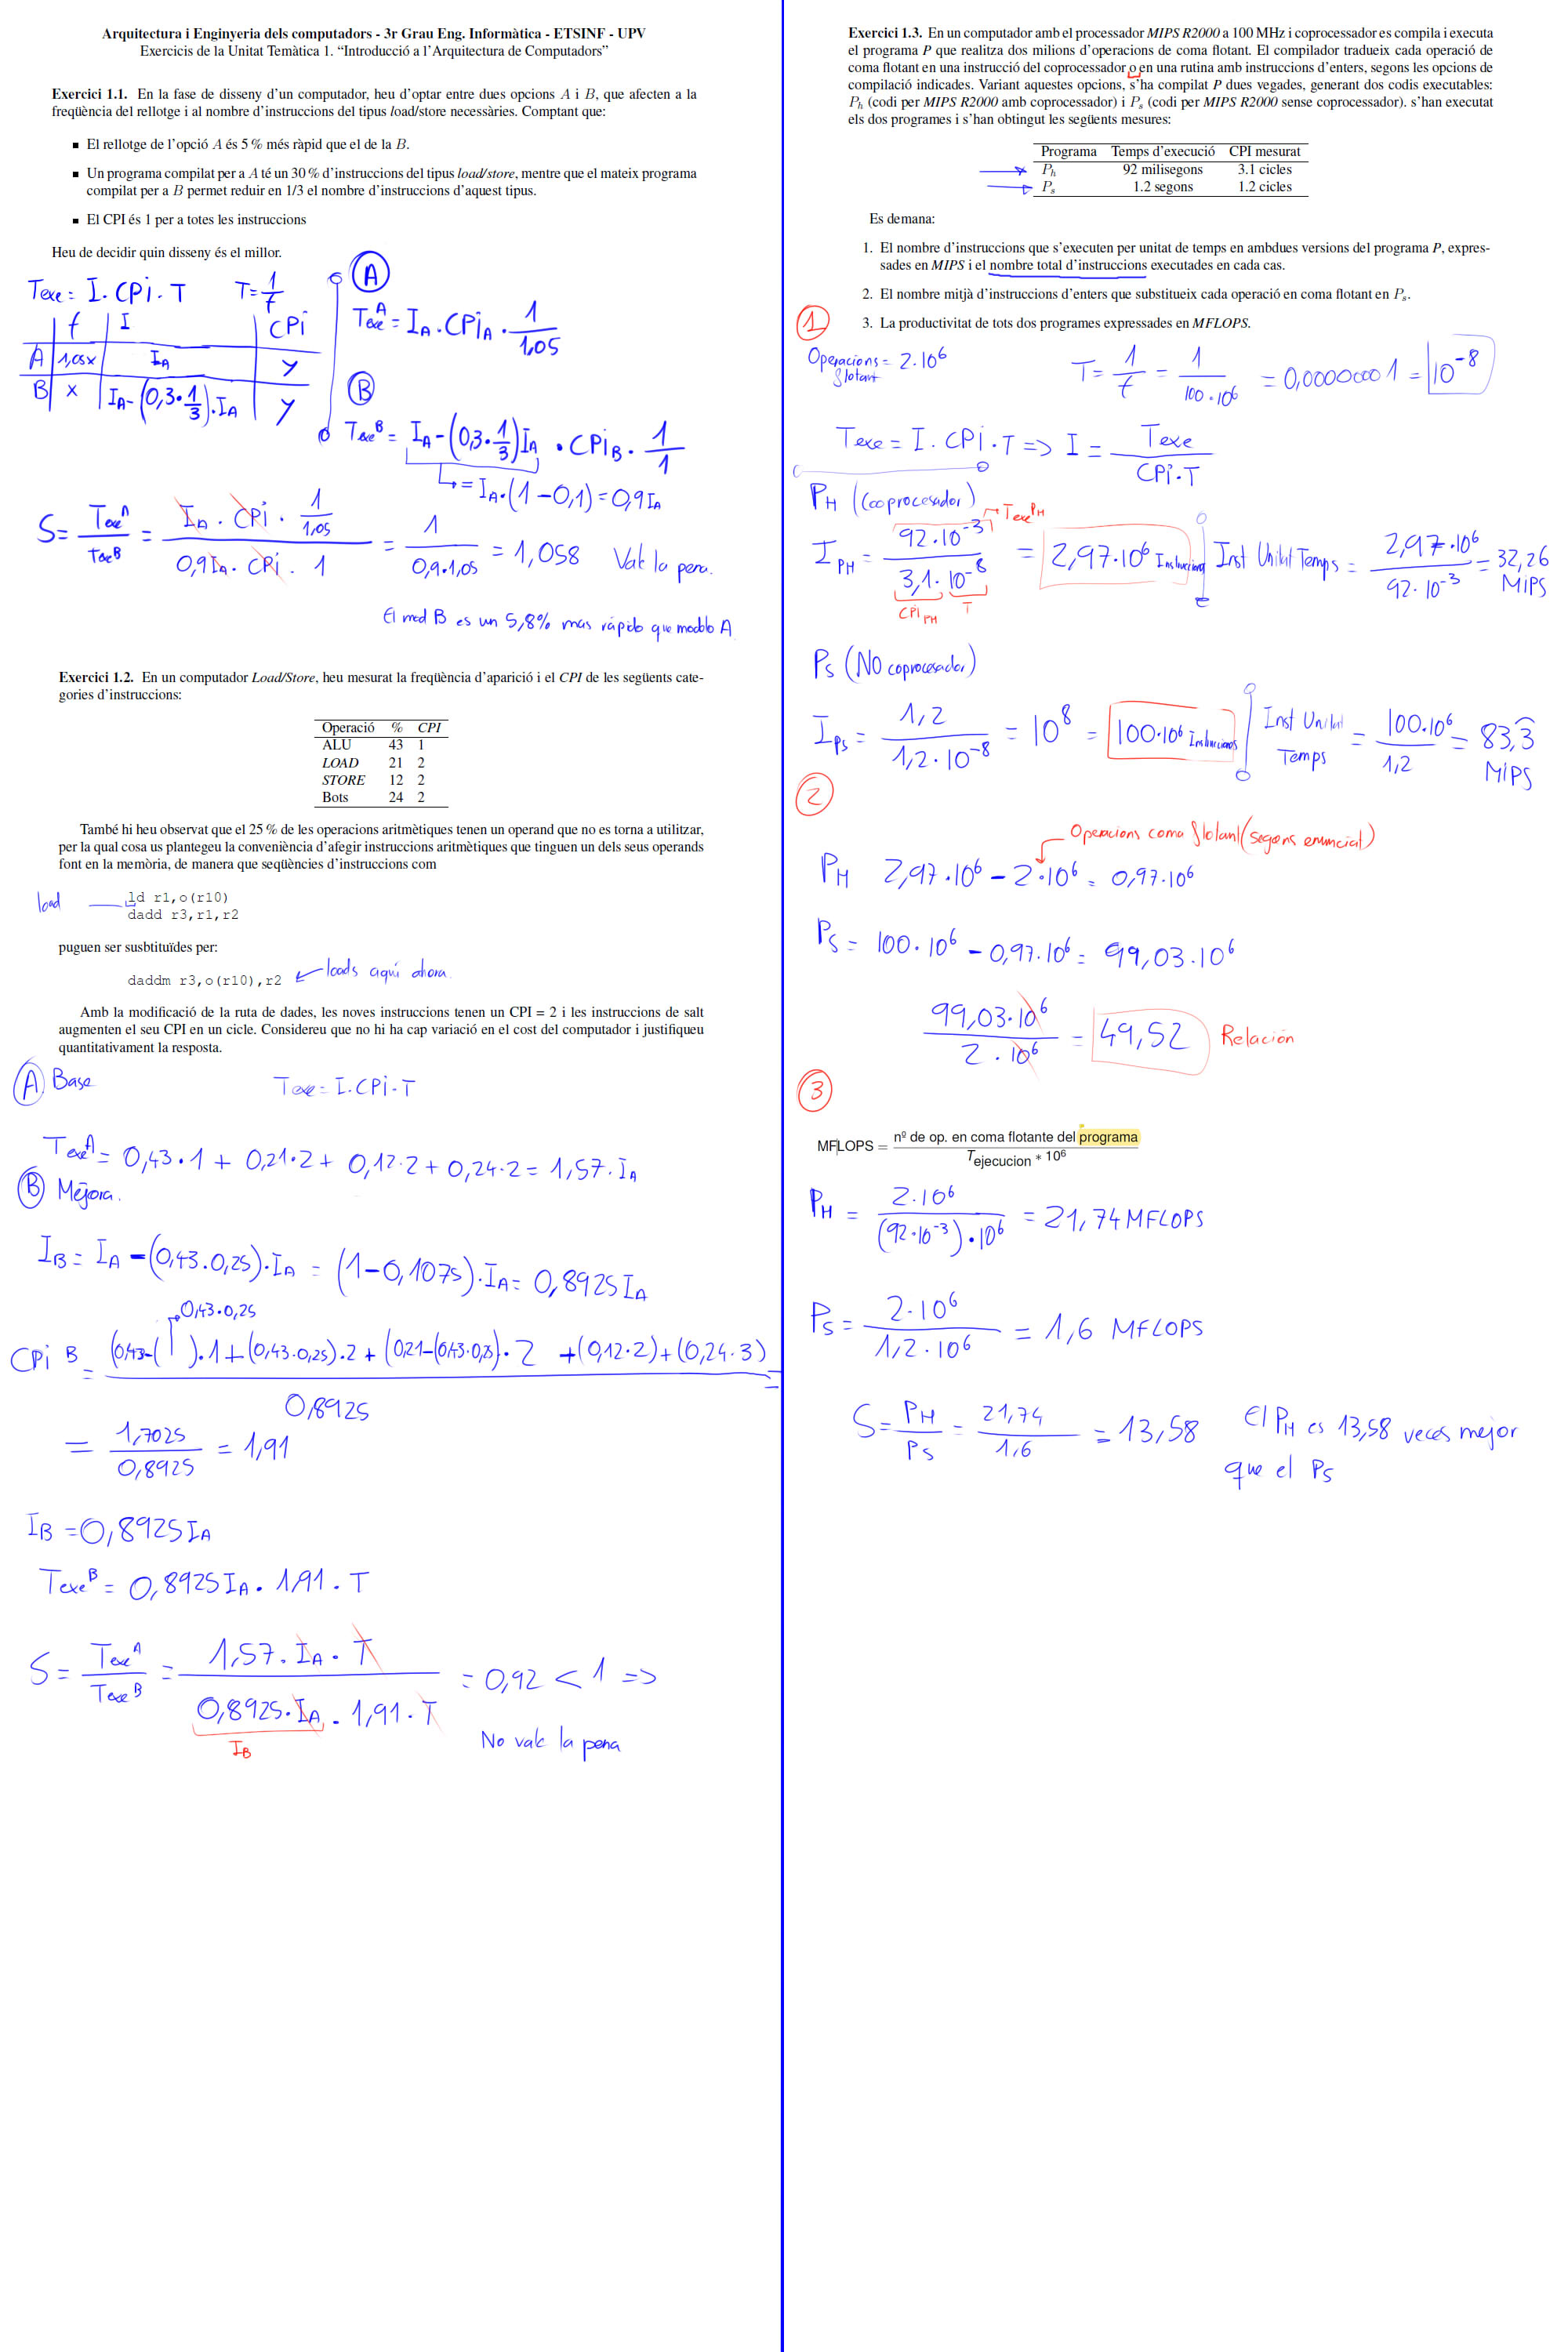 Arquitectura i Enginyeria dels computadors - 3r Grau Eng. Informàtica - ETSINF - UPV
Exercicis de la Unitat Temàtica 1. “Introducció a l’Arquitectura de Computadors”
Exercici 1.1. En la fase de disseny d’un computador, heu d’optar entre dues opcions A i B, que afecten a la
freqüència del rellotge i al nombre d’instruccions del tipus load/store necessàries. Comptant que:
▪ El rellotge de l’opció A és 5 % més ràpid que el de la B.
▪ Un programa compilat per a A té un 30 % d’instruccions del tipus load/store, mentre que el mateix programa
compilat per a B permet reduir en 1/3 el nombre d’instruccions d’aquest tipus.
▪ El CPI és 1 per a totes les instruccions
Heu de decidir quin disseny és el millor.
Texe = I · CPi · T T = 1/f
f I CPi
A 1,05x IA y
B x IA-(0,3·1/3)·IA y
A
Texe^A = IA · CPiA · 1/1,05
B
Texe^B = IA-(0,3·1/3)IA · CPiB · 1/1
= IA·(1-0,1) = 0,9IA
S = Texe^A/Texe^B = (IA · CPi · 1/1,05)/(0,9IA · CPi · 1) = 1/(0,9·1,05) = 1,058 Vale la pena.
El mod B es un 5,8% mas rápido que modelo A.
Exercici 1.2. En un computador Load/Store, heu mesurat la freqüència d’aparició i el CPI de les següents cate-
gories d’instruccions:
Operació % CPI
ALU 43 1
LOAD 21 2
STORE 12 2
Bots 24 2
També hi heu observat que el 25 % de les operacions aritmètiques tenen un operand que no es torna a utilitzar,
per la qual cosa us plantegeu la conveniència d’afegir instruccions aritmètiques que tinguen un dels seus operands
font en la memòria, de manera que seqüències d’instruccions com
load ld r1,o(r10)
dadd r3,r1,r2
puguen ser susbtituïdes per:
daddm r3,o(r10),r2 loads aquí ahora.
Amb la modificació de la ruta de dades, les noves instruccions tenen un CPI = 2 i les instruccions de salt
augmenten el seu CPI en un cicle. Considereu que no hi ha cap variació en el cost del computador i justifiqueu
quantitativament la resposta.
A Base Texe = I·CPi·T
Texe^A = 0,43·1 + 0,21·2 + 0,12·2 + 0,24·2 = 1,57·IA
B Mejora.
IB = IA -(0,43·0,25)·IA = (1-0,1075)·IA = 0,8925IA
0,43·0,25
CPi B = ((0,43-( )·1+(0,43·0,25)·2+(0,21-(0,43·0,25)·2 +(0,12·2)+(0,24·3))/0,8925 =
= 1,7025/0,8925 = 1,91
IB = 0,8925IA
Texe^B = 0,8925IA · 1,91 · T
S = Texe^A/Texe^B = (1,57·IA·T)/(0,8925·IA·1,91·T) = 0,92 < 1 =>
IB
No vale la pena
Exercici 1.3. En un computador amb el processador MIPS R2000 a 100 MHz i coprocessador es compila i executa
el programa P que realitza dos milions d’operacions de coma flotant. El compilador tradueix cada operació de
coma flotant en una instrucció del coprocessador o en una rutina amb instruccions d’enters, segons les opcions de
compilació indicades. Variant aquestes opcions, s’ha compilat P dues vegades, generant dos codis executables:
Ph (codi per MIPS R2000 amb coprocessador) i Ps (codi per MIPS R2000 sense coprocessador). s’han executat
els dos programes i s’han obtingut les següents mesures:
Programa Temps d’execució CPI mesurat
Ph 92 milisegons 3.1 cicles
Ps 1.2 segons 1.2 cicles
Es demana:
1. El nombre d’instruccions que s’executen per unitat de temps en ambdues versions del programa P, expres-
sades en MIPS i el nombre total d’instruccions executades en cada cas.
2. El nombre mitjà d’instruccions d’enters que substitueix cada operació en coma flotant en Ps.
3. La productivitat de tots dos programes expressades en MFLOPS.
1
Operacions flotant = 2·10^6 T = 1/f = 1/(100·10^6) = 0,00000001 = 10^-8
Texe = I · CPi · T => I = Texe/(CPi·T)
PH (coprocesador)
Texe^PH
IPH = (92·10^-3)/(3,1·10^-8) = 2,97·10^6 Instrucciones Inst Unitat Temps = (2,97·10^6)/(92·10^-3) = 32,26 MIPS
CPiPH T
PS (NO coprocesador)
IPS = 1,2/(1,2·10^-8) = 10^8 = 100·10^6 Instrucciones Inst Unitat Temps = (100·10^6)/1,2 = 83,3 MiPS
2
Operacions coma flotant (segons enunciat)
PH 2,97·10^6 - 2·10^6 = 0,97·10^6
PS = 100·10^6 - 0,97·10^6 = 99,03·10^6
(99,03·10^6)/(2·10^6) = 49,52 Relación
3
MFLOPS = nº de op. en coma flotante del programa
Tejecucion * 10^6
PH = (2·10^6)/((92·10^-3)·10^6) = 21,74 MFLOPS
PS = (2·10^6)/(1,2·10^6) = 1,6 MFLOPS
S = PH/PS = 21,74/1,6 = 13,58 El PH es 13,58 veces mejor
que el PS